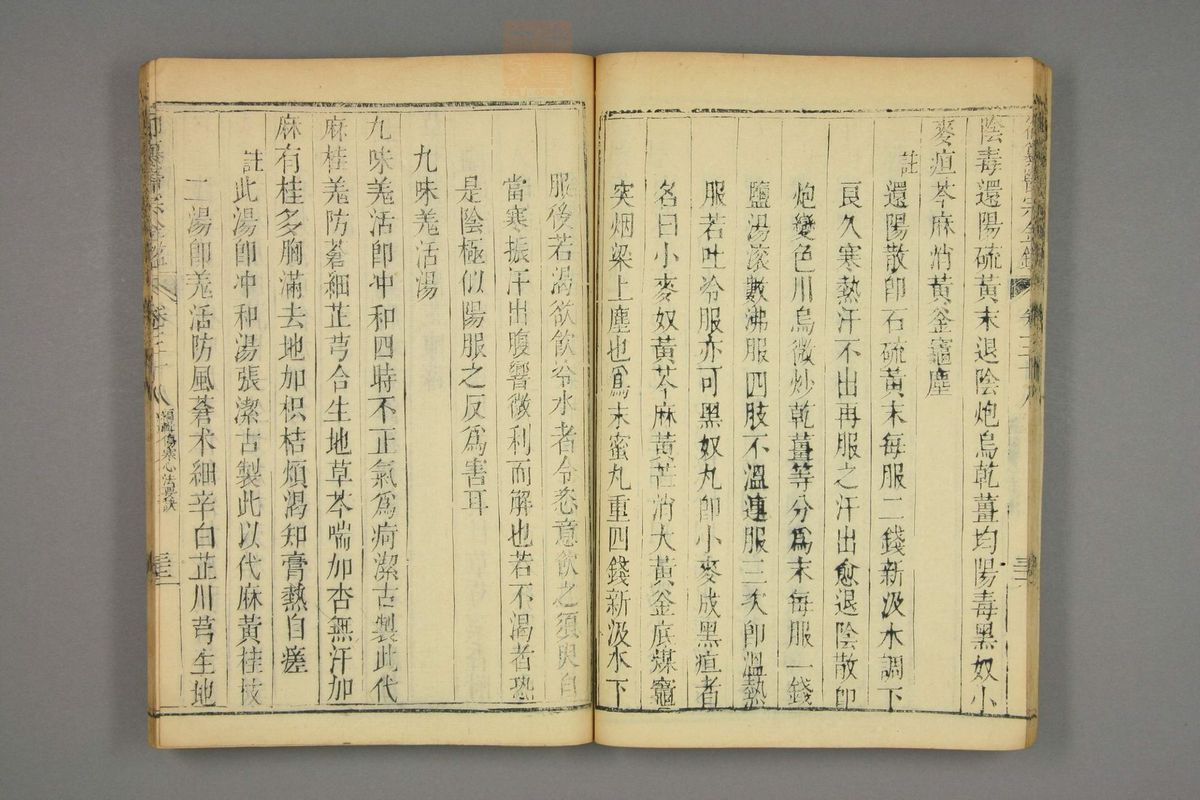 陰毒還陽硫黃末退陰炮烏乾薑均陽毒黑奴小
麥疸芩麻硝黃釜竈塵
註還陽散卽石硫黃末每服二錢新汲水調下
良久寒熱汗不出再服之汗出愈退陰散卽
炮變色川烏微炒乾薑等分爲末每服一錢
鹽湯滾數沸服四肢不溫連服三次卽溫熱
服若吐冷服亦可黑奴丸卽小麥成黑疸者
名曰小麥奴黃芩麻黃芒消大黃釜底煤竈
突烟梁上塵也爲末蜜丸重四錢新汲水下
服後若渴欲飲冷水者令恣意飲之須臾自
當寒振汗出腹響微利而解也若不渴者恐
是陰極似陽服之反爲害耳
九味羗活湯
九味羗活卽冲和四時不正氣爲疴潔古製此代
麻桂羗防蒼細芷芎合生地草芩喘加杏無汗加
麻有桂多胸滿去地加枳桔煩渴知膏熱自瘥
註此湯卽冲和湯張潔古製此以代麻黃桂枝
二湯卽羗活防風蒼术細辛白芷川芎生地
御纂醫宗金鑑 卷三十八 編輯傷寒心法要訣